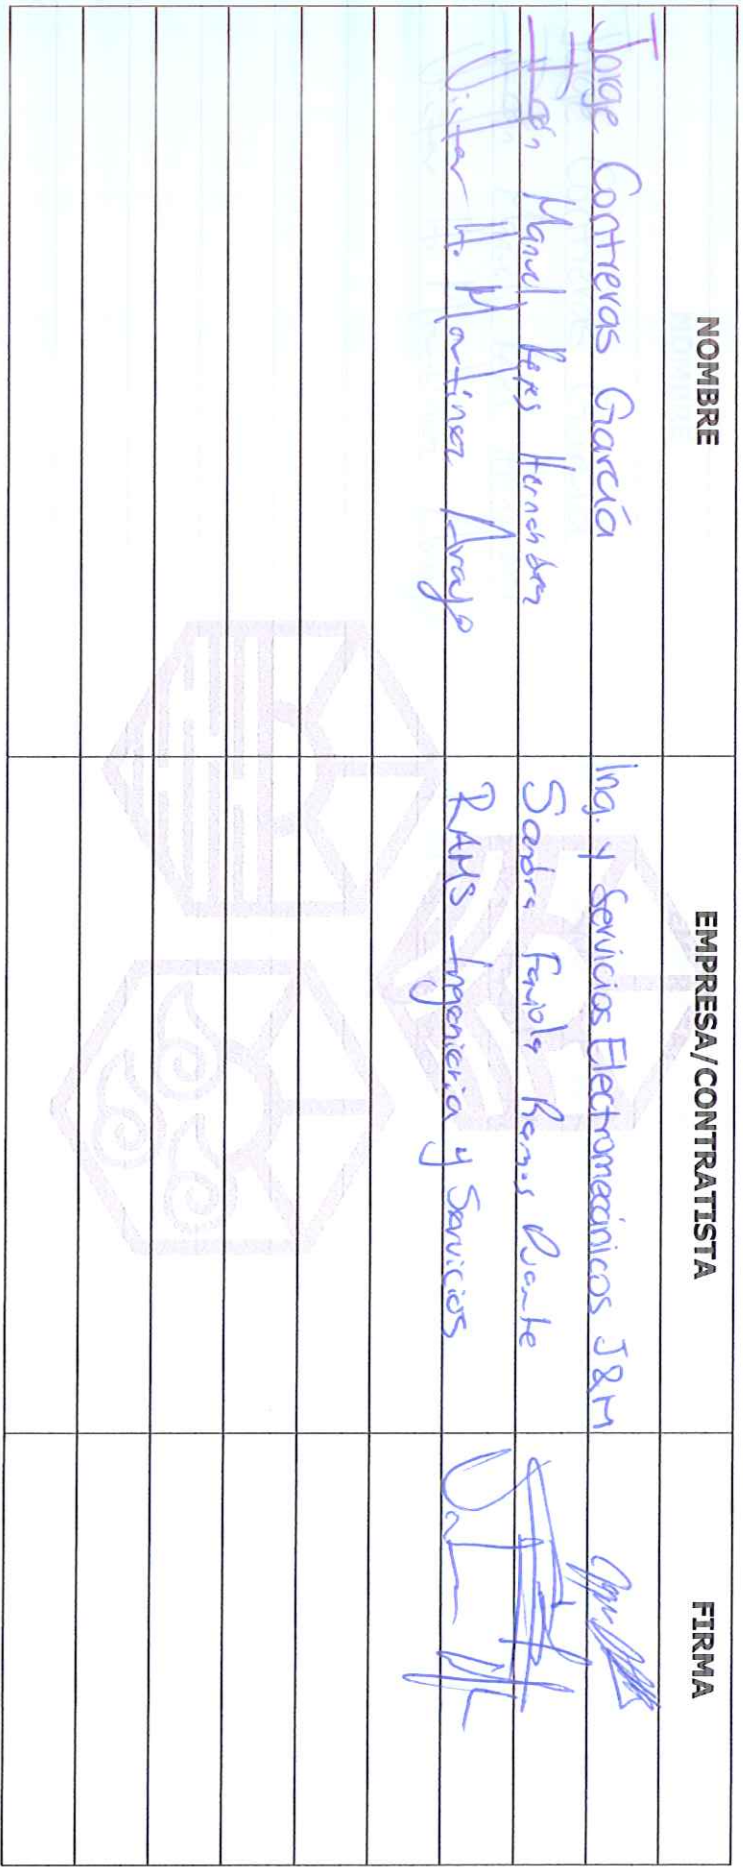 NOMBRE EMPRESA/CONTRATISTA FIRMA
Jorge Contreras García Ing. y Servicios Electromecánicos J&M
Manuel Reyes Hernandez Sandra Fabiola Ramos Puente
Victor H. Martinez Araujo RAMS Ingenieria y Servicios